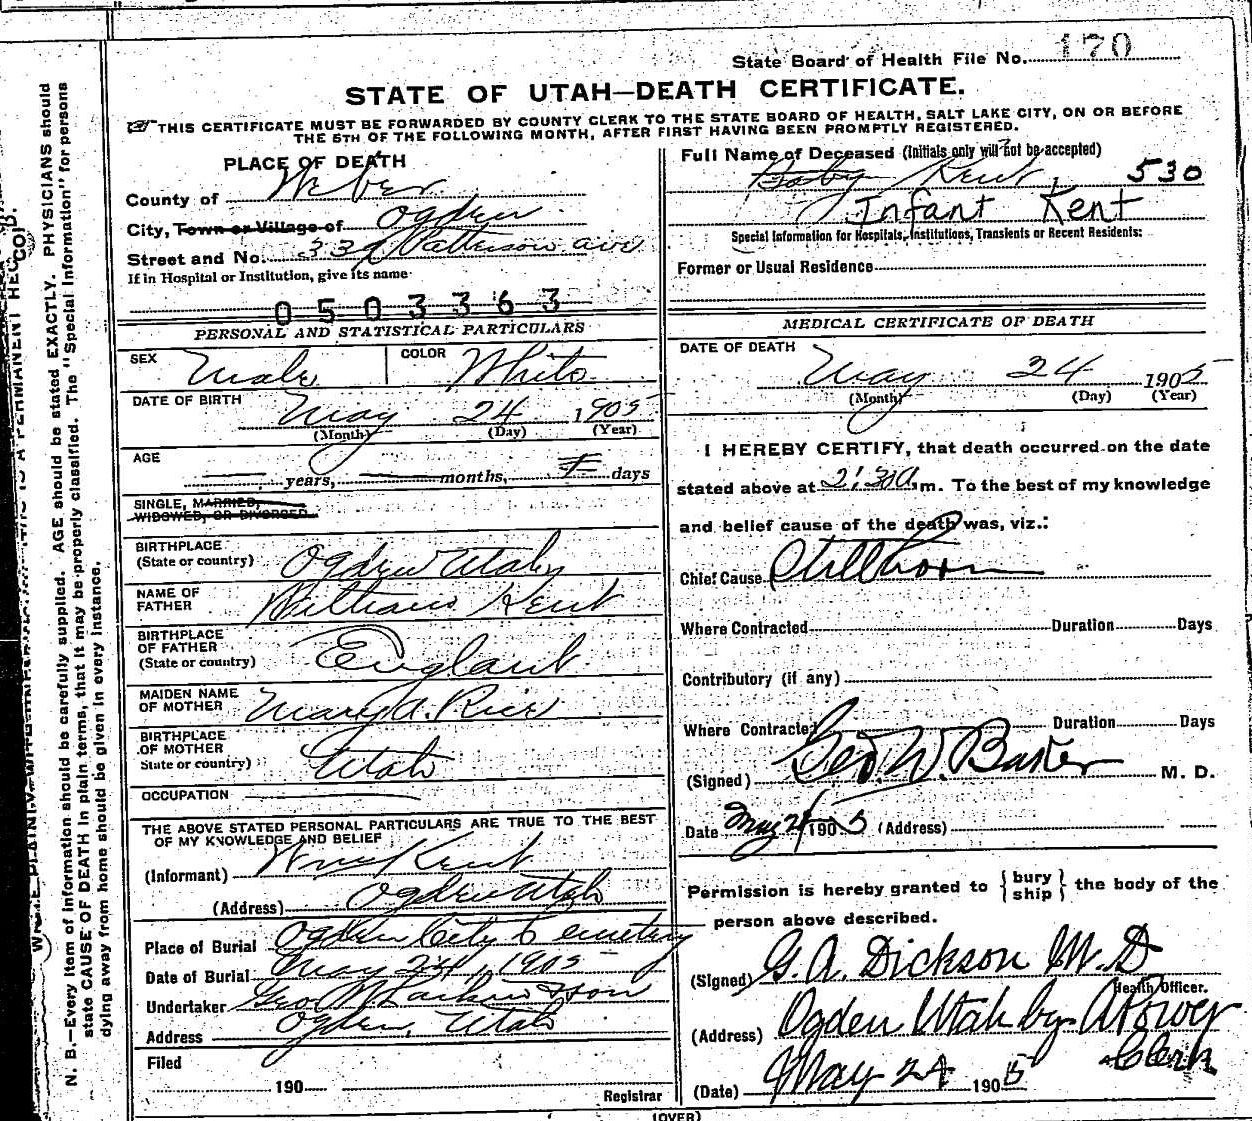 State Board of Health File No. 170
STATE OF UTAH—DEATH CERTIFICATE.
THIS CERTIFICATE MUST BE FORWARDED BY COUNTY CLERK TO THE STATE BOARD OF HEALTH, SALT LAKE CITY, ON OR BEFORE
THE 5TH OF THE FOLLOWING MONTH, AFTER FIRST HAVING BEEN PROMPTLY REGISTERED.
PLACE OF DEATH
County of Weber
City, Town or Village of Ogden
Street and No. 339 Patterson ave
If in Hospital or Institution, give its name
0503363
PERSONAL AND STATISTICAL PARTICULARS
SEX Male COLOR White
DATE OF BIRTH May 24 1905
(Month) (Day) (Year)
AGE
years, months, days
SINGLE, MARRIED,
WIDOWED, OR DIVORCED
BIRTHPLACE
(State or country) Ogden Utah
NAME OF
FATHER William Kent
BIRTHPLACE
OF FATHER
(State or country) England
MAIDEN NAME
OF MOTHER Mary A. Rice
BIRTHPLACE
OF MOTHER
State or country) Utah
OCCUPATION
THE ABOVE STATED PERSONAL PARTICULARS ARE TRUE TO THE BEST
OF MY KNOWLEDGE AND BELIEF
(Informant) Wm Kent
(Address) Ogden Utah
Place of Burial Ogden City Cemetery
Date of Burial May 24, 1905
Undertaker Geo W Larkin & Son
Address Ogden, Utah
Filed
190
Registrar
Full Name of Deceased (Initials only will not be accepted)
Baby Kent, 530
Infant Kent
Special Information for Hospitals, Institutions, Transients or Recent Residents:
Former or Usual Residence
MEDICAL CERTIFICATE OF DEATH
DATE OF DEATH
May 24 1905
(Month) (Day) (Year)
I HEREBY CERTIFY, that death occurred on the date
stated above at 2:30 a.m. To the best of my knowledge
and belief cause of the death was, viz.:
Chief Cause Stillborn
Where Contracted Duration Days
Contributory (if any)
Where Contracted Duration Days
(Signed) Geo. W. Baker M. D.
Date May 24 1905 (Address)
Permission is hereby granted to {bury
ship} the body of the
person above described.
(Signed) G. A. Dickson M.D
Health Officer.
(Address) Ogden Utah by A Power
Clerk
(Date) May 24 1905
(OVER)
N. B.—Every item of information should be carefully supplied. AGE should be stated EXACTLY. PHYSICIANS should
state CAUSE OF DEATH in plain terms, that it may be properly classified. The "Special Information" for persons
dying away from home should be given in every instance.